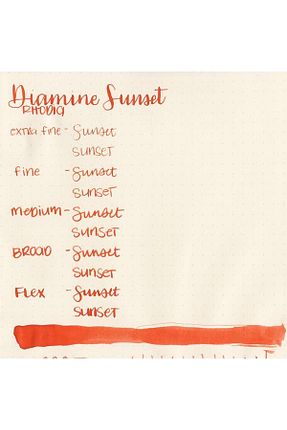 Diamine Sunset
RHODIA
extra fine - Sunset
SUNSET
fine - Sunset
SUNSET
medium - Sunset
SUNSET
BROAD - Sunset
SUNSET
FLEX - Sunset
SUNSET